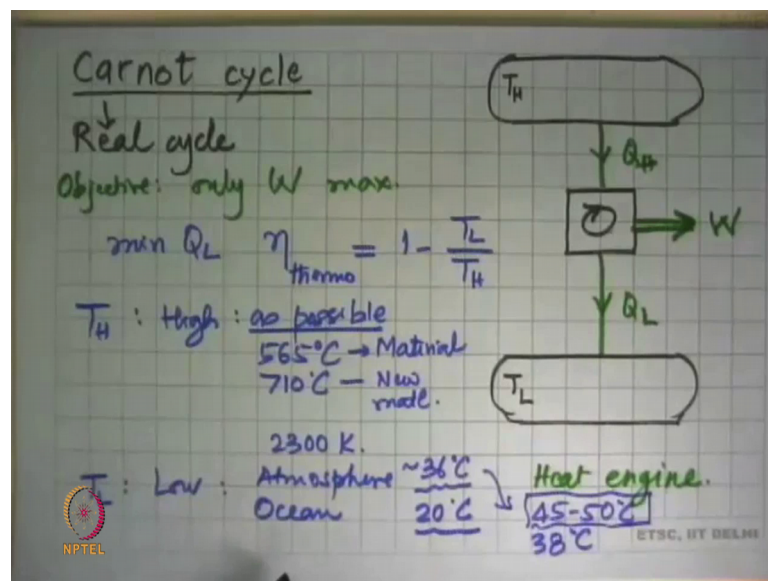 Carnot cycle
Real cycle
Objective: only W max.
min Q_L η_thermo = 1 - T_L / T_H
T_H : High : as possible
565°C → Material
710°C — New
matl.
2300 K.
T_L : Low : Atmosphere ~36°C
Ocean 20°C
T_H
Q_H
W
Q_L
T_L
Heat engine.
45-50°C
38°C
NPTEL
ETSC, IIT DELHI